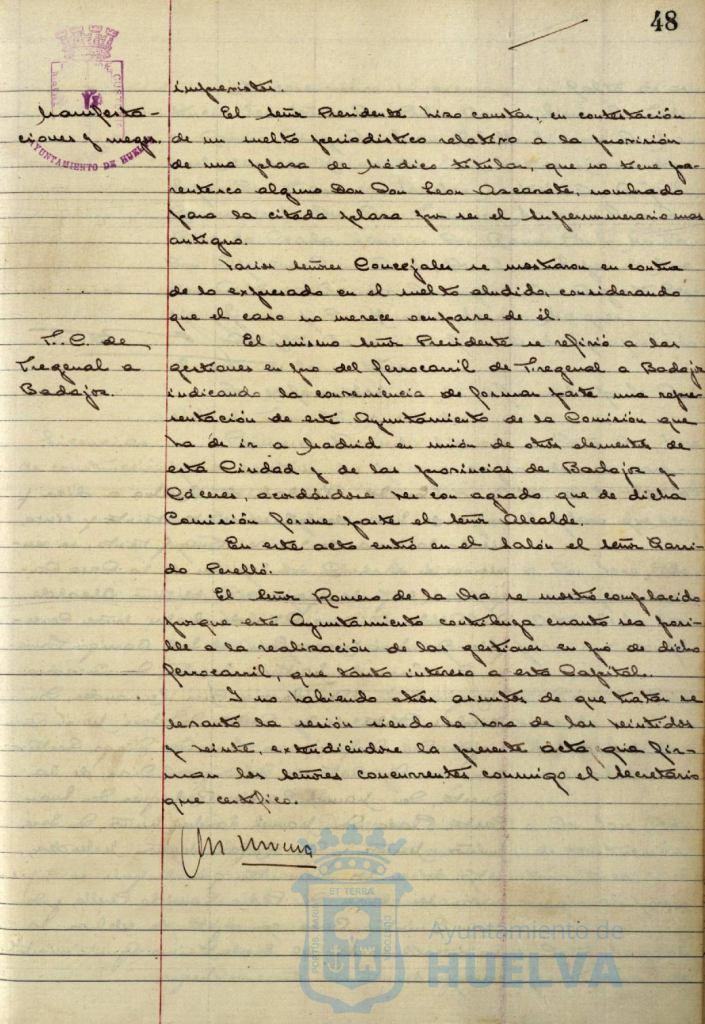 48
imprevistos.
Manifesta-
ciones y ruegos.
AYUNTAMIENTO DE HUELVA
El señor Presidente hizo constar, en contestación
de un suelto periodístico relativo a la provisión
de una plaza de Médico titular, que no tiene pa-
rentesco alguno Don Don Leon Azcarate, nombrado
para la citada plaza por ser el supernumerario mas
antiguo.
Varios señores Concejales se mostraron en contra
de lo expresado en el suelto aludido, considerando
que el caso no merece ocuparse de él.
F. C. de
Fregenal a
Badajoz.
El mismo señor Presidente se refirió a las
gestiones en pro del ferrocarril de Fregenal a Badajoz
indicando la conveniencia de formar parte una repre-
sentación de este Ayuntamiento de la Comisión que
ha de ir a Madrid en unión de otros elementos de
esta Ciudad y de las provincias de Badajoz y
Cáceres, acordándose ver con agrado que de dicha
Comisión forme parte el señor Alcalde.
En este acto entró en el salón el señor Garri-
do Perelló.
El señor Romero de la Osa se mostró complacido
porque este Ayuntamiento contribuya cuanto sea posi-
ble a la realización de las gestiones en pró de dicho
ferrocarril, que tanto interesa a esta Capital.
Y no habiendo otros asuntos de que tratar se
levantó la sesión siendo la hora de las veintidos
y veinte, extendiéndose la presente acta que fir-
man los señores concurrentes conmigo el Secretario
que certifico.
PORTUS MARIS
ET TERRÆ
CUSTODIA
Ayuntamiento de
HUELVA